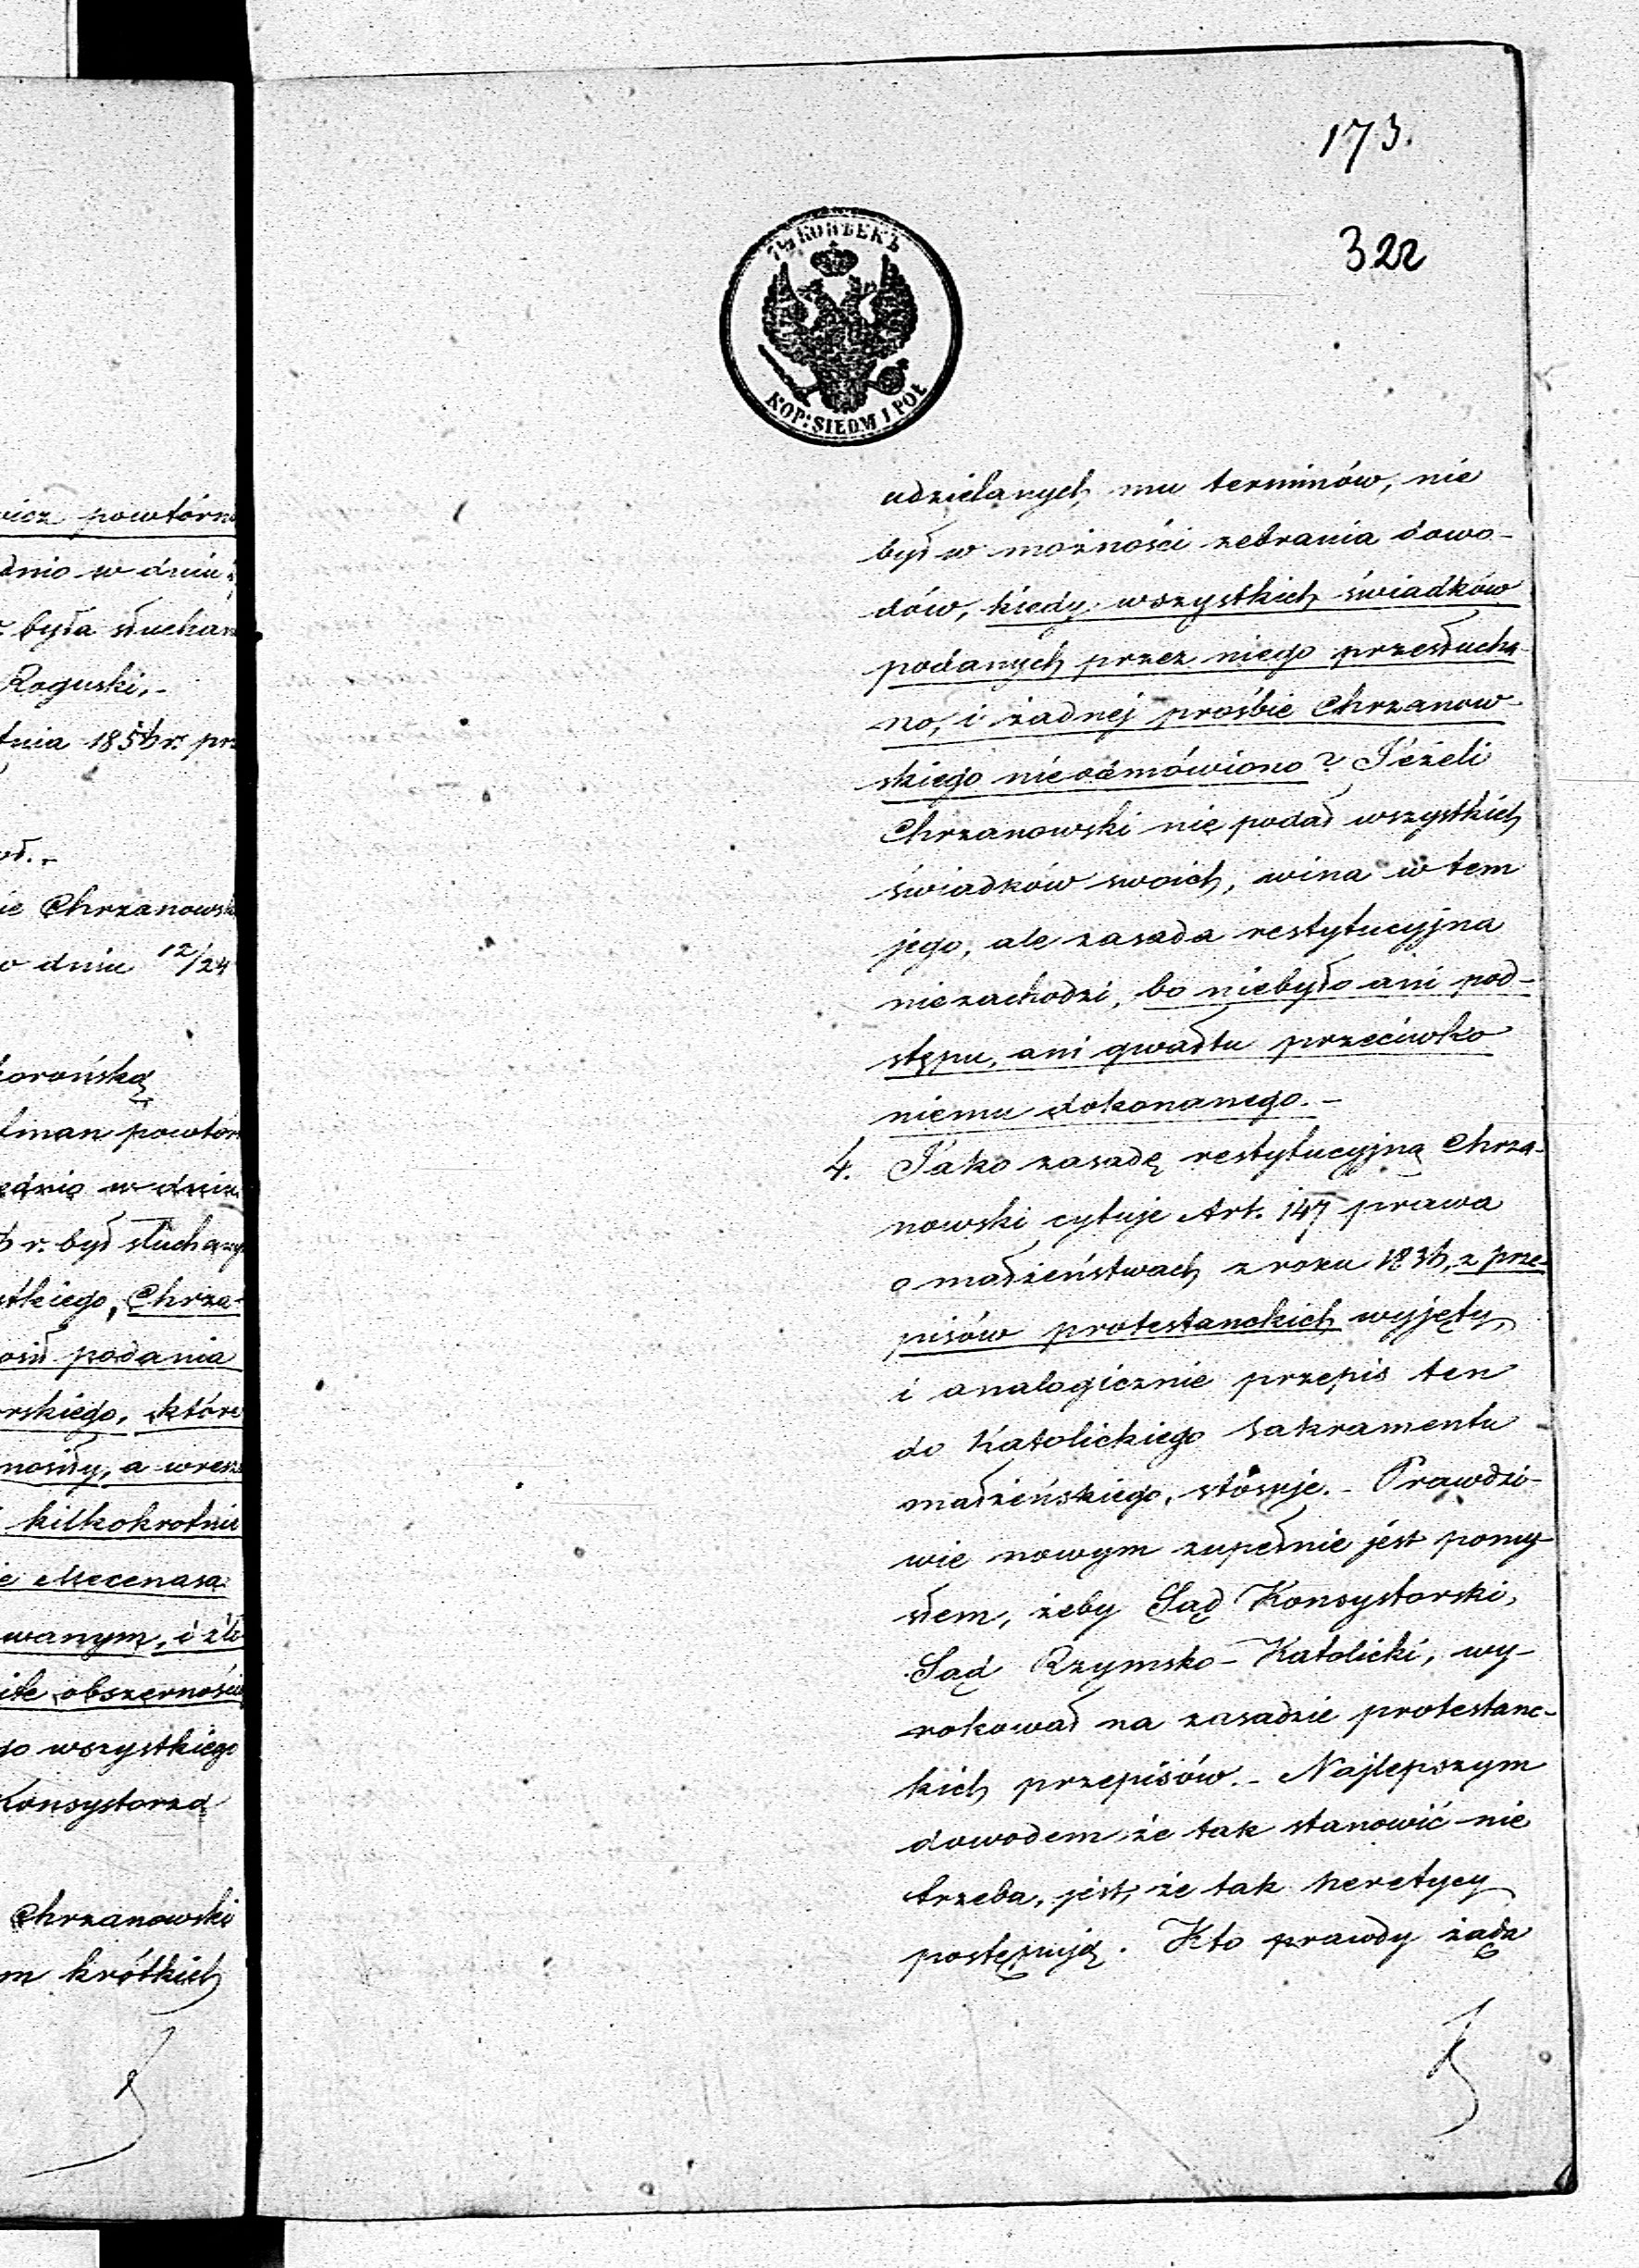 wicz powtórn
dnio w dniu
była słuchan
Roguski.-
tnia 1856 r. prz
ie Chrzanowsk
o dniu 12/24
korońską
lman powtór
ednio w dniu
6 r. był słuchany
stkiego, Chrza-
osił podania
rskiego, które
nosiły, a wresz
kilkokrotnie
e Mecenasa
wanym, i zło
ile obszerności
go wszystkiego
Konsystorza
Chrzanowski
m krótkich
173.
322
7½ КОПѢЕКЪ
KOP: SIEDM I PÓŁ
udzielanych mu terminów, nie
był w możności zebrania dowo-
dów, kiedy wszystkich świadków
podanych przez niego przesłucha-
no, i żadnej prośbie Chrzanow-
skiego nieodmówiono? Jeżeli
Chrzanowski nie podał wszystkich
świadków swoich, wina w tem
jego, ale zasada restytucyjna
niezachodzi, bo niebyło ani pod-
stępu, ani gwałtu przeciwko
niemu dokonanego.-
4. Jako zasadę restytucyjną Chrza-
nowski cytuje Art. 147 prawa
o małżeństwach z roku 1836, z prze-
pisów protestanckich wyjęty,
i analogicznie przepis ten
do Katolickiego Sakramentu
małżeńskiego, stósuje.- Prawdzi-
wie nowym zupełnie jest pomy-
słem, żeby Sąd Konsystorski,
Sąd Rzymsko-Katolicki, wy-
rokował na zasadzie protestanc-
kich przepisów.- Najlepszym
dowodem że tak stanowić nie
trzeba, jest, że tak heretycy
postępują. Kto prawdy żąda